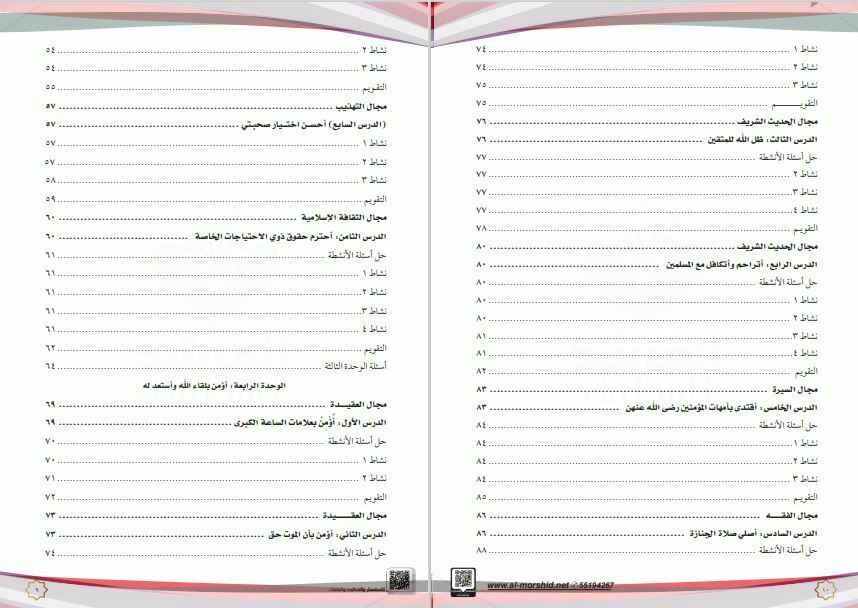 نشاط ٢ ........ ٥٤
نشاط ٣ ........ ٥٤
التقويم ........ ٥٥
مجال التهذيب ........ ٥٧
(الدرس السابع) أحسن اختيار صحبتي ........ ٥٧
نشاط ١ ........ ٥٧
نشاط ٢ ........ ٥٧
نشاط ٣ ........ ٥٨
التقويم ........ ٥٩
مجال الثقافة الإسلامية ........ ٦٠
الدرس الثامن: أحترم حقوق ذوي الاحتياجات الخاصة ........ ٦٠
حل أسئلة الأنشطة ........ ٦١
نشاط ١ ........ ٦١
نشاط ٢ ........ ٦١
نشاط ٣ ........ ٦١
نشاط ٤ ........ ٦١
التقويم ........ ٦٢
أسئلة الوحدة الثالثة ........ ٦٤
الوحدة الرابعة: أؤمن بلقاء الله وأستعد له
مجال العقيـدة ........ ٦٩
الدرس الأول: أُؤْمنُ بعلامات الساعة الكبرى ........ ٦٩
حل أسئلة الأنشطة ........ ٧٠
نشاط ١ ........ ٧٠
نشاط ٢ ........ ٧١
التقويم ........ ٧٢
مجال العقـــيدة ........ ٧٣
الدرس الثاني: أؤمن بأن الموت حق ........ ٧٣
حل أسئلة الأنشطة ........ ٧٤
٩
نشاط ١ ........ ٧٤
نشاط ٢ ........ ٧٤
نشاط ٣ ........ ٧٥
التقويـــــــم ........ ٧٥
مجال الحديث الشريف ........ ٧٦
الدرس الثالث: ظل الله للمتقين ........ ٧٦
حل أسئلة الأنشطة ........ ٧٧
نشاط ٢ ........ ٧٧
نشاط ٣ ........ ٧٧
نشاط ٤ ........ ٧٧
التقويم ........ ٧٨
مجال الحديث الشريف ........ ٨٠
الدرس الرابع: أتراحم وأتكافل مع المسلمين ........ ٨٠
حل أسئلة الأنشطة ........ ٨٠
نشاط ١ ........ ٨٠
نشاط ٢ ........ ٨٠
نشاط ٣ ........ ٨١
نشاط ٤ ........ ٨١
التقويم ........ ٨٢
مجال السيرة ........ ٨٣
الدرس الخامس: أقتدى بأمهات المؤمنين رضى الله عنهن ........ ٨٣
حل أسئلة الأنشطة ........ ٨٤
نشاط ١ ........ ٨٤
نشاط ٢ ........ ٨٤
نشاط ٣ ........ ٨٤
التقويم ........ ٨٥
مجال الفقـــه ........ ٨٦
الدرس السادس: أصلي صلاة الجنازة ........ ٨٦
حل أسئلة الأنشطة ........ ٨٨
www.al-morshid.net 55194267
١٠